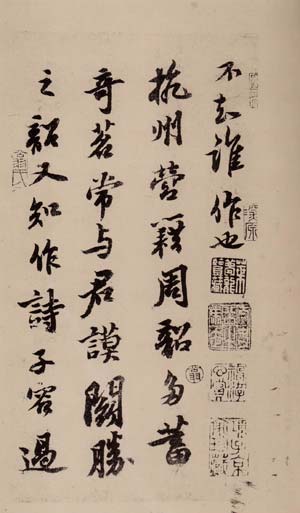 不知誰作也
杭州營籍周韶多蓄
奇茗常与君謨鬪勝
之韶又知作詩子容過